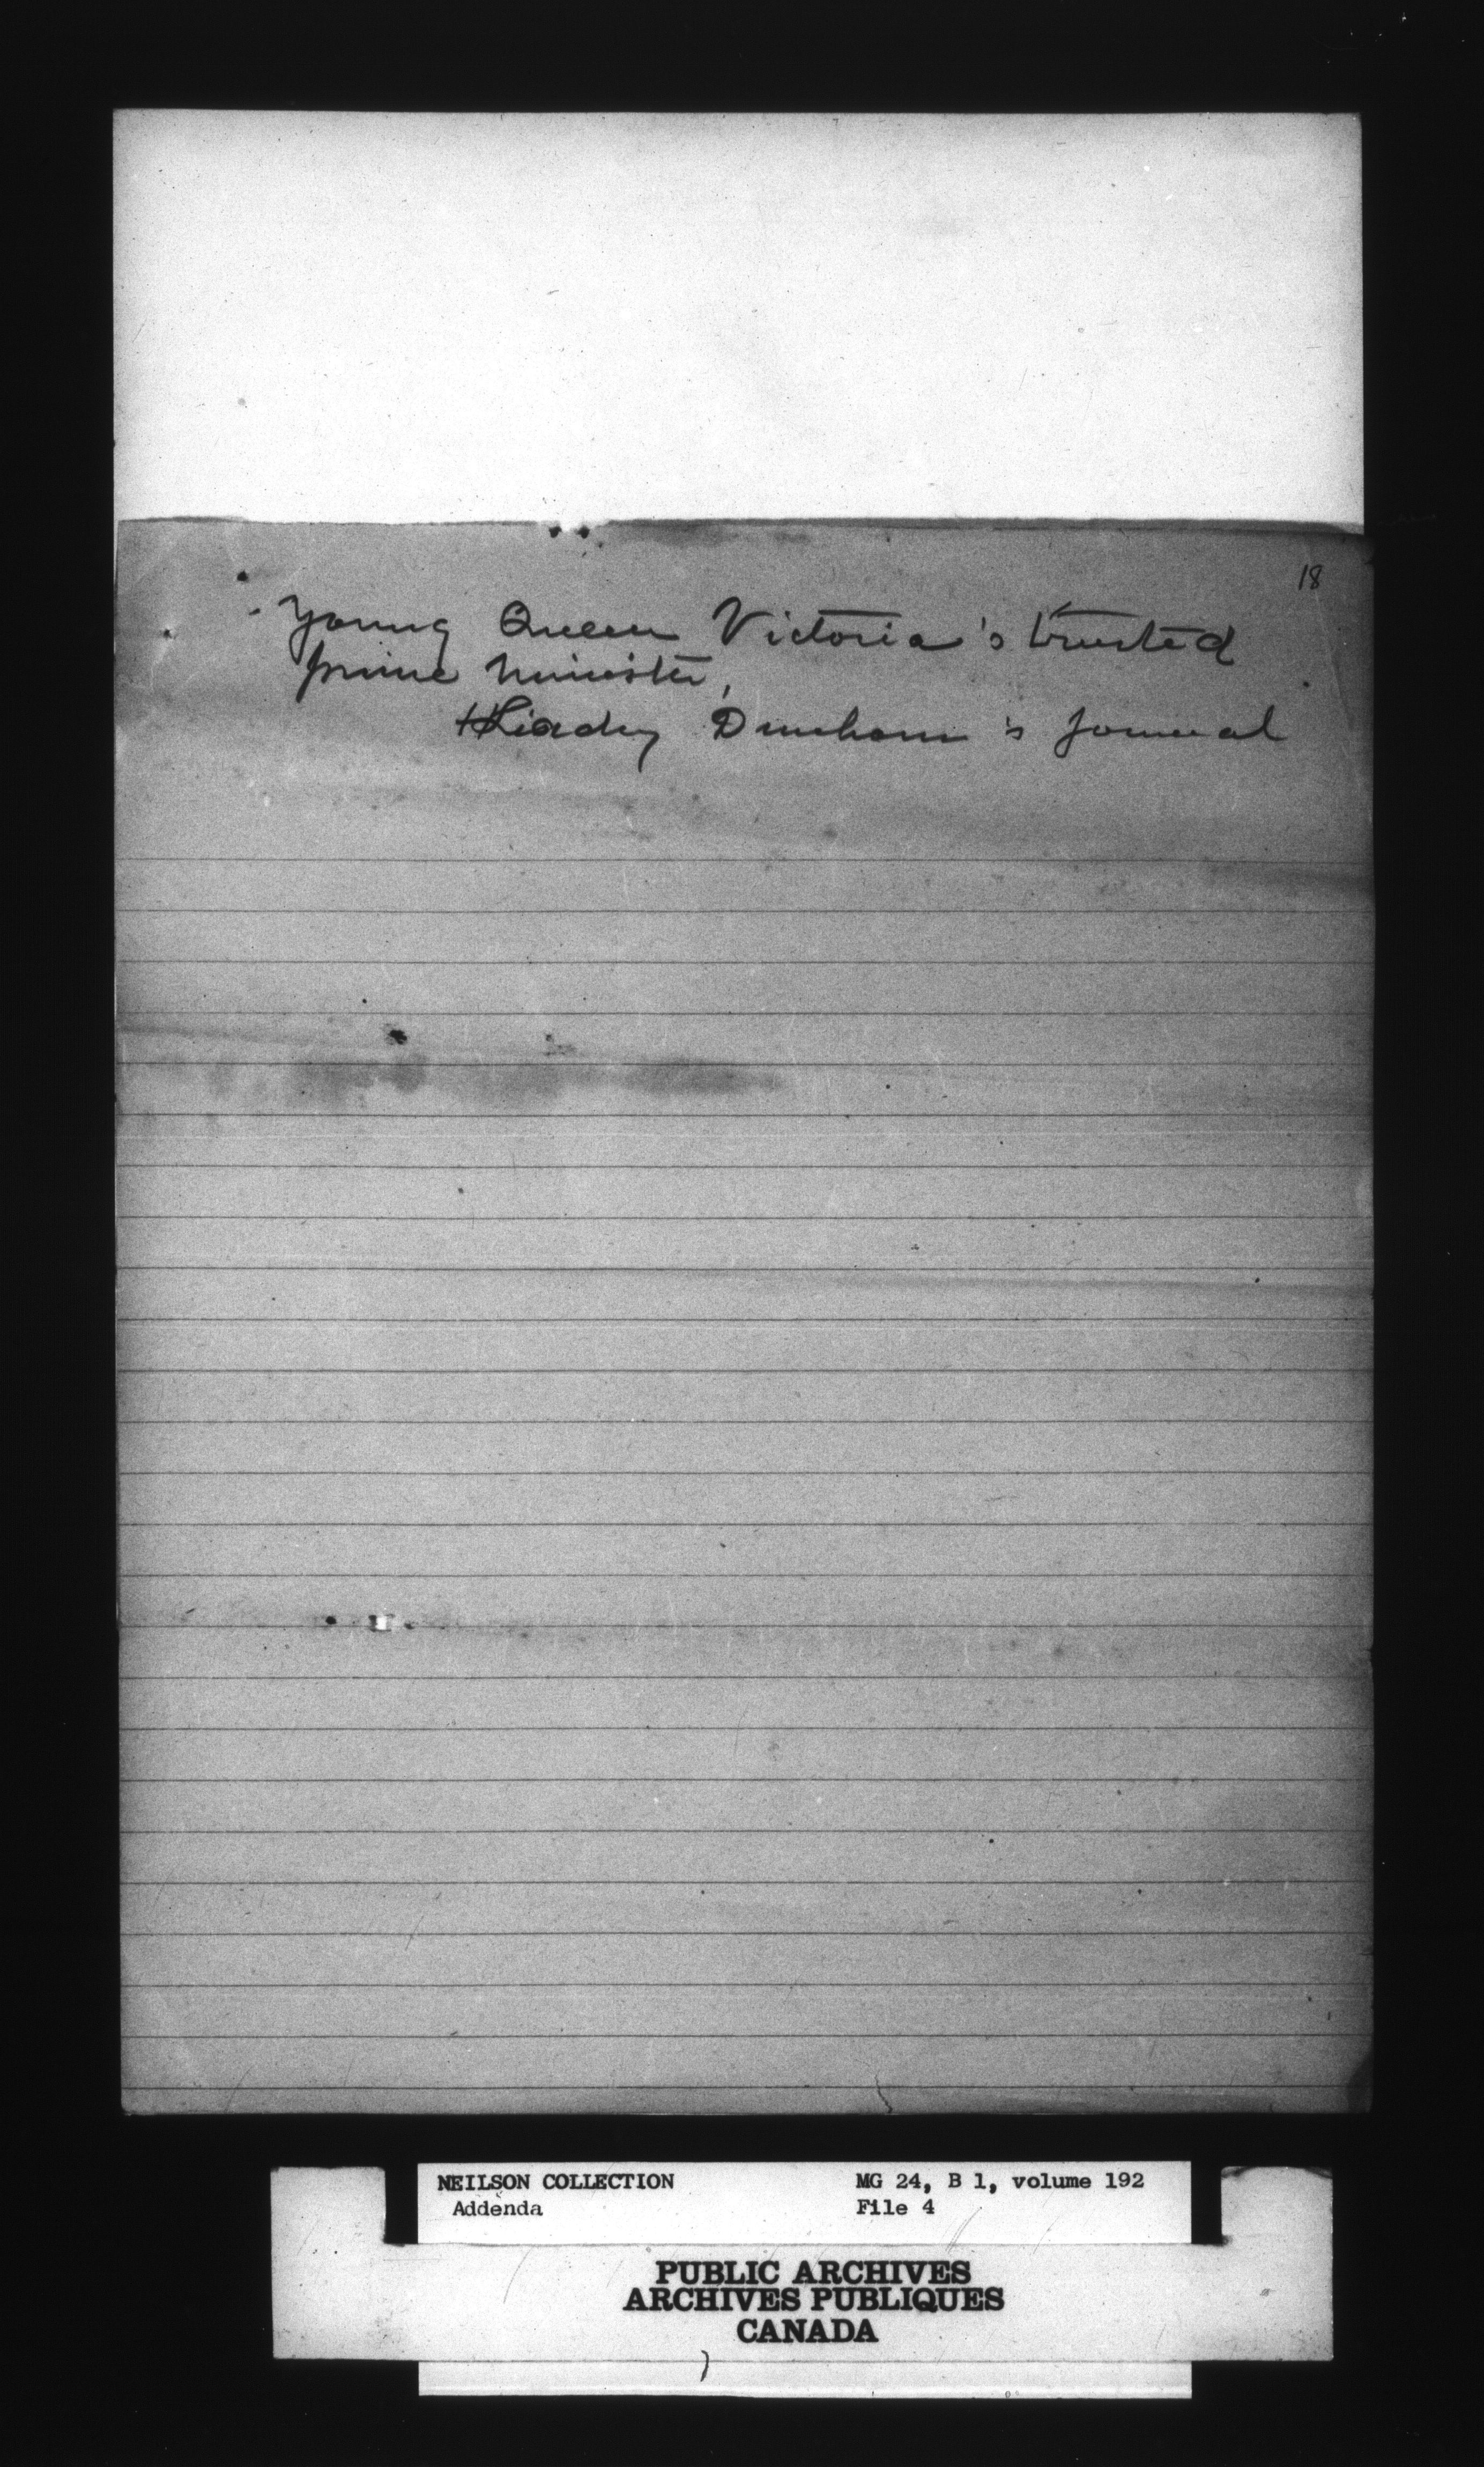 18
young Queen Victoria's trusted
prime minister,
Lady Durham's journal
NEILSON COLLECTION MG 24, B 1, volume 192
Addenda File 4
PUBLIC ARCHIVES
ARCHIVES PUBLIQUES
CANADA